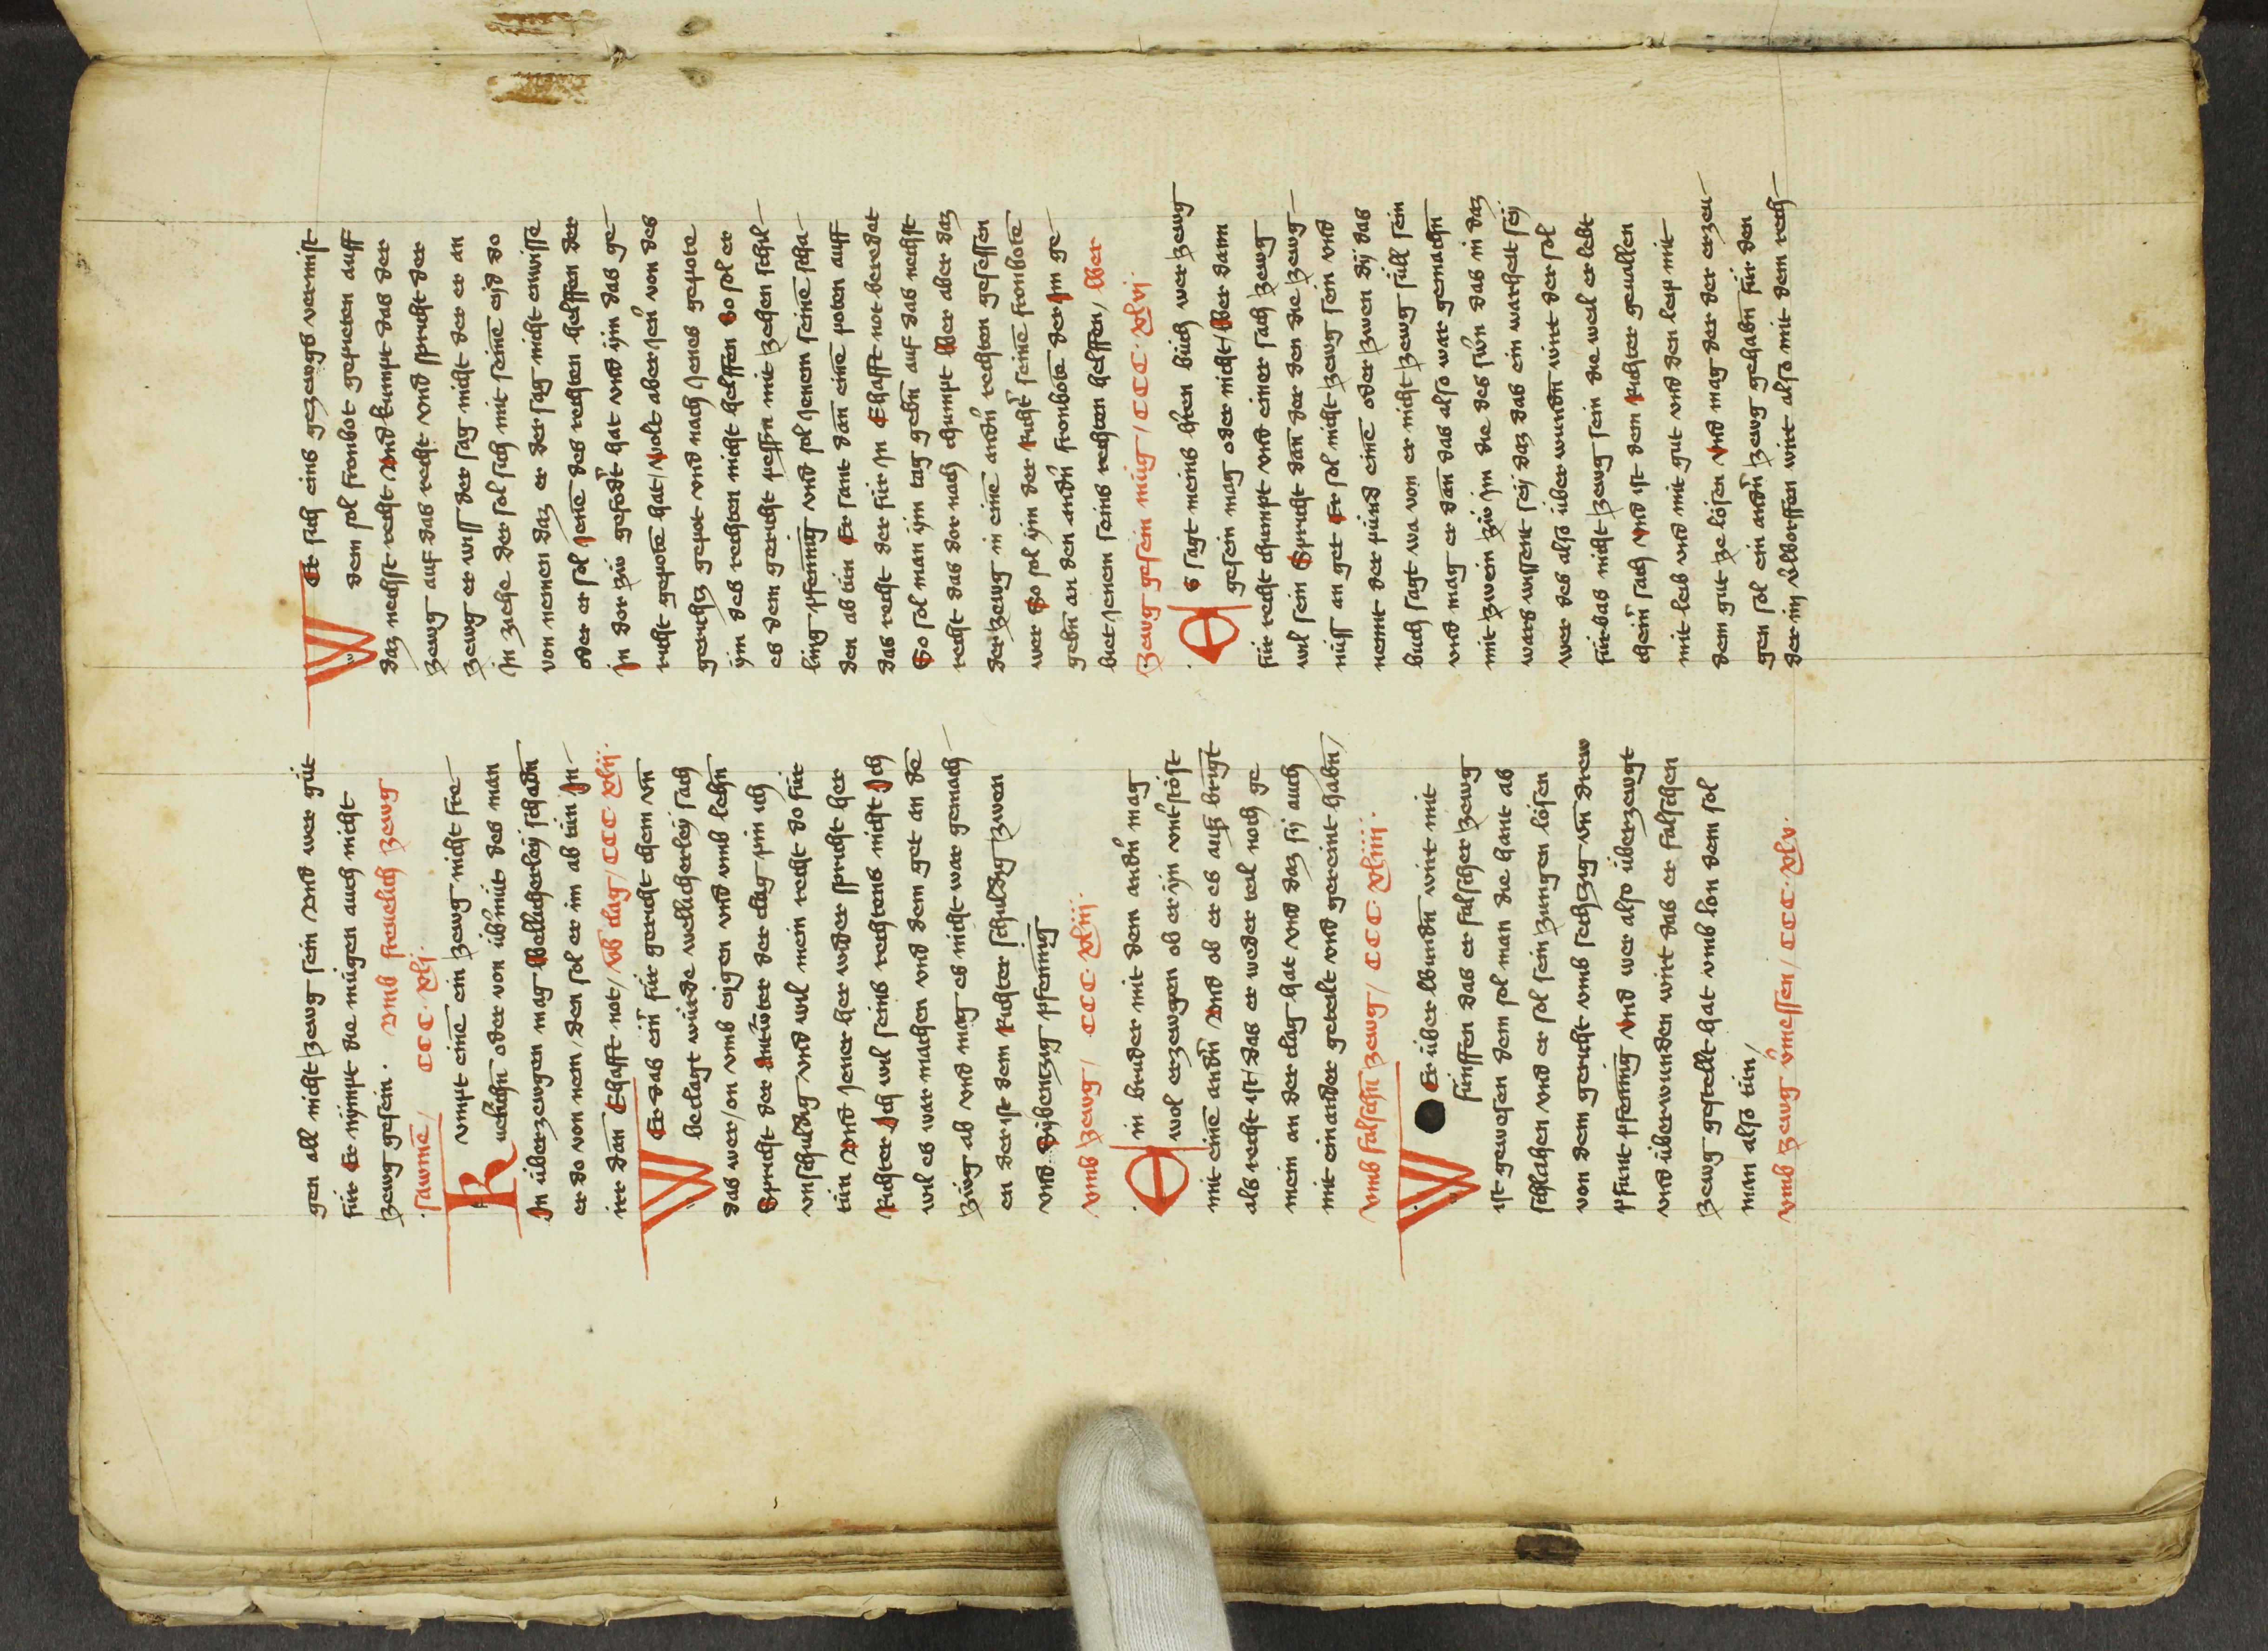 gen all nicht zewg sein Vnd wer güt
für Er nympt die mügen auch nicht
zewg gesein · vmb freuelich zewg
sawme͞ / CCC · xlj ·
Kumpt eine͞ ein zewg nicht fre-
uelichn͞ oder von übʼmüt des man
In überzewgen mag Wellicherley schadn͞
er do von nem / den sol er im ab tün In-
irr dan͞ Ehafft not / vb͞ clag / CCC · xlij ·
WEr das ein͞ für gericht chem vn͞
beclagt würde wellicherley sach
das wer / on vmb eygen vnd vmb lehn͞
Spricht der Antw͞ter der clag pin ich
vnschuldig vnd wil mein recht do für
tün Vnd jener her wider spricht her
Richter Ich wil seins rechtens nicht Ich
wil es war machen vnd dem get an de͞
züwg ab vnd mag es nicht war gemach-
en der ist dem Richter schuldig zwen
vnd Sybentzig pfennig
vmb zewg / CCC · xliij ·
Ein bruder mit dem andn͞ mag
wol erzewgen ob er ijn vntʼstöst
mit eine͞ andn͞ Vnd ob er es auß bringt
als recht ist / das er weder teil noch ge
mein an der clag hat vnd daz sij auch
mit einander geteilt vnd gereint habn͞ /
vmb falschn͞ zewg / CCC · xliiij ·
WEr über wundn͞ wirt mit
fünffen das er falscher zewg
ist gewesen dem sol man die hant ab
schlahen vnd er sol sein zungen lösen
von dem gericht vmb sechzig vn͞ drew
pfunt pfennig Vnd wer also überzewgt
vnd überwunden wirt das er falschen
zewg gestellt hat vmb lon dem sol
man also tün /
vmb zewg vʼmessen / CCC · xlv ·
WEr sich eins gezewgs vermist
dem sol fronbot gepieten auff
daz nechst recht Vnd kumpt das der
zewg auf das recht vnd spricht der
zewg er wiss der sag nicht der er an
In ziehe der sol sich mit seine͞ eyd do
von nemen daz er der sag nicht enwisse
oder er sol jene͞ des rechten helffen der
In dor zü gefodʼt hat vnd ijm das ge-
richt gepote͞ hat / Wolt aber jenʼ von des
gerichtz gepot vnd nach jenes gepote
ijm des rechten nicht helffen So sol er
es dem gericht pessn͞ mit zehen schil-
ling pfennig vnd sol jenem seine͞ scha-
den ab tün Er sant dan͞ eine͞ poten auff
das recht der für jn Ehafft not beredet
So sol man ijm tag gebn͞ auf das nechst
recht das dor nach chumpt Wer aber daz
der zewg in eine͞ andn͞ rechten gesessen
wer So sol ijm der Richtʼ seine͞ fronbote͞
gebn͞ an den andn͞ fronbote͞ der Im ge-
biet jenem seins rechten helffen / Wer
zewg gesein müg / CCC · xlvj ·
Es sagt meins hren büch wer zewg
gesein mag oder nicht / Wer dann
für recht chumpt vnd einer sach zewg
wil sein Spricht dan͞ der den die zewg-
nüss an get Er sol nicht zewg sein vnd
nennt der pünd eine͞ oder zwen dij das
buch sagt wa von er nicht zewg süll sein
vnd mag er dan͞ das also war gemachn͞
mit zwein zü jm die des swʼn das in daz
wars wissent sey daz das ein warheit sey
wer des also überwundn͞ wirt der sol
fürbas nicht zewg sein die weil er lebt
chein͞ sach Vnd ist dem Richter geuallen
mit leib vnd mit gut vnd den leip mit
dem gut ze lösen Vnd mag der der erzew-
gen sol ein andn͞ zewg gehabn͞ für den
der im vʼworffen wirt also mit dem rech-